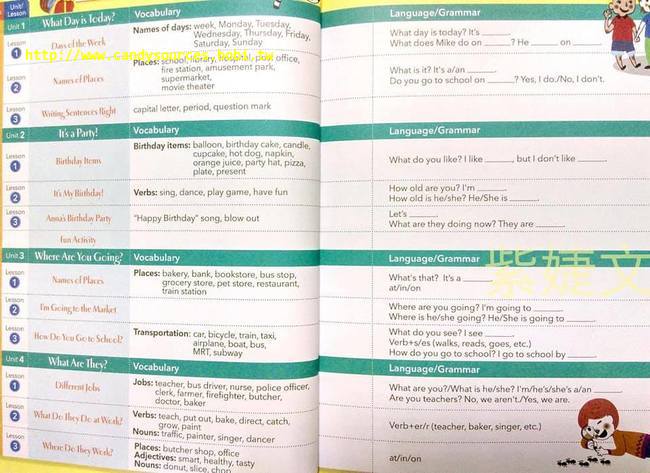 Unit/
Lesson
Unit 1 What Day is Today? Vocabulary Language/Grammar
Lesson 1 Days of the Week
Names of days: week, Monday, Tuesday,
Wednesday, Thursday, Friday,
Saturday, Sunday
What day is today? It's
What does Mike do on ? He on .
http://www.candysources.bobi.tw
Lesson 2 Names of Places
Places: school, library, hospital, post office,
fire station, amusement park,
supermarket,
movie theater
What is it? It's a/an .
Do you go to school on ? Yes, I do./No, I don't.
Lesson 3 Writing Sentences Right
capital letter, period, question mark
Unit 2 It's a Party! Vocabulary Language/Grammar
Lesson 1 Birthday Items
Birthday items: balloon, birthday cake, candle,
cupcake, hot dog, napkin,
orange juice, party hat, pizza,
plate, present
What do you like? I like , but I don't like .
Lesson 2 It's My Birthday!
Verbs: sing, dance, play game, have fun
How old are you? I'm .
How old is he/she? He/She is .
Lesson 3 Anna's Birthday Party
"Happy Birthday" song, blow out
Let's .
What are they doing now? They are .
Fun Activity
Unit 3 Where Are You Going? Vocabulary Language/Grammar
Lesson 1 Names of Places
Places: bakery, bank, bookstore, bus stop,
grocery store, pet store, restaurant,
train station
What's that? It's a
at/in/on
紫婕文
Lesson 2 I'm Going to the Market
Where are you going? I'm going to .
Where is he/she going? He/She is going to .
Lesson 3 How Do You Go to School?
Transportation: car, bicycle, train, taxi,
airplane, boat, bus,
MRT, subway
What do you see? I see .
Verb+s/es (walks, reads, goes, etc.)
How do you go to school? I go to school by .
Unit 4 What Are They? Vocabulary Language/Grammar
Lesson 1 Different Jobs
Jobs: teacher, bus driver, nurse, police officer,
clerk, farmer, firefighter, butcher,
doctor, baker
What are you?/What is he/she? I'm/he's/she's a/an .
Are you teachers? No, we aren't./Yes, we are.
Lesson 2 What Do They Do at Work?
Verbs: teach, put out, bake, direct, catch,
grow, paint
Nouns: traffic, painter, singer, dancer
Verb+er/r (teacher, baker, singer, etc.)
Lesson 3 Where Do They Work?
Places: butcher shop, office
Adjectives: smart, healthy, tasty
Nouns: donut, slice, chop
at/in/on